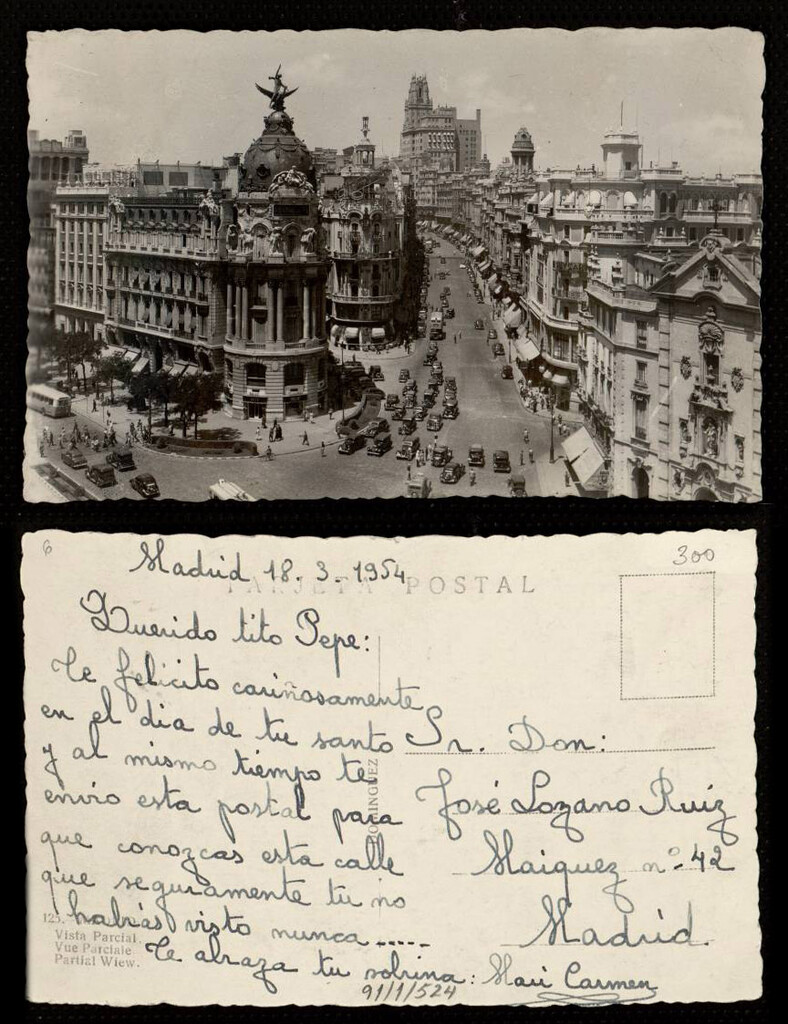 6
300
Madrid 18. 3. 1954
TARJETA POSTAL
Querido tito Pepe:
Te felicito cariñosamente
en el dia de tu santo
y al mismo tiempo te
envio esta postal para
que conozcas esta calle
que seguramente tu no
habias visto nunca.....
Te abraza tu sobrina: Mari Carmen
DOMINGUEZ
Sr. Don:
José Lozano Ruiz
Maiquez nº 42
Madrid.
125.
Vista Parcial
Vue Parciale
Partial Wiew.
91/1/524